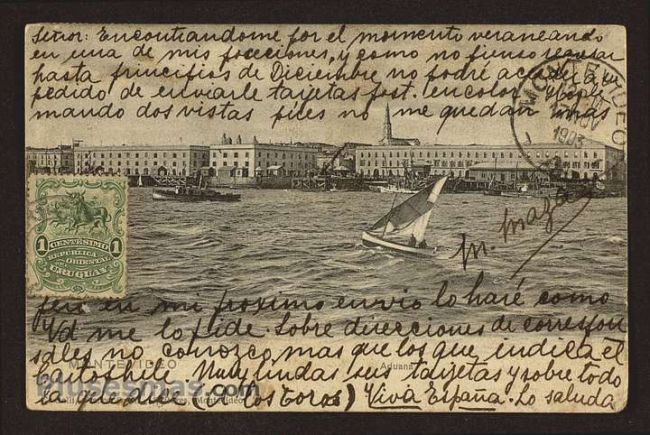 Señor: Encontrandome por el momento veraneando
en una de mis poseciones, y como no pienso regresar
hasta principios de Diciembre no podré acceder a su
pedido de enviarle tarjetas post. en color. Hoy le
mando dos vistas pues no me quedan mas
MONTEVIDEO
NOV
1903
1 CENTÉSIMO 1
REPÚBLICA
ORIENTAL
URUGUAY
M. Maza
pero en mi proximo envio lo haré como
Vd me lo pide. Sobre direcciones de correspon
sales no conozco mas que los que indica el
MONTEVIDEO
Aduana
Cartofilico. Muy lindas sus tarjetas y sobre todo
Plusesmas.com
Montevideo
la que dice (A los toros) Viva España. Lo saluda